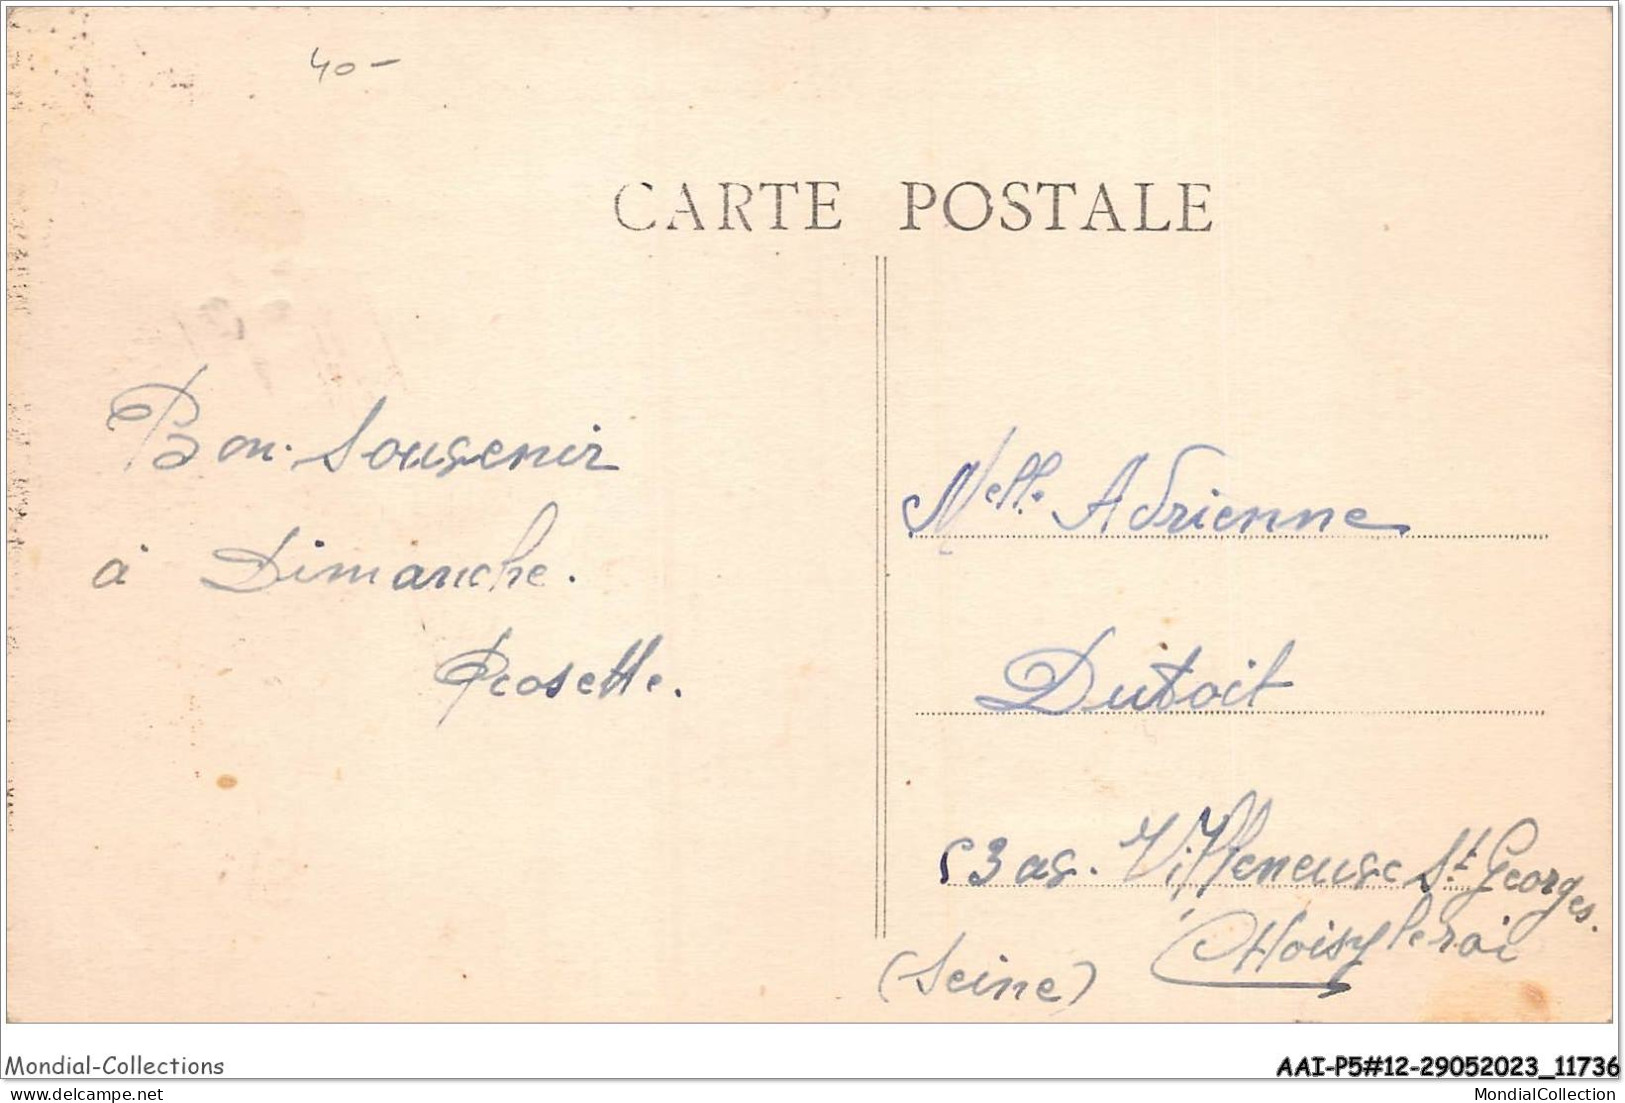 40-
CARTE POSTALE
Bon Souvenir
à Dimanche.
Rosette.
Melle. Adrienne
Dutoit
53 av. Villeneuve St. Georges.
Choisy le roi
(Seine)
Mondial-Collections
AAI-P5#12-29052023_11736
www.delcampe.net
MondialCollection